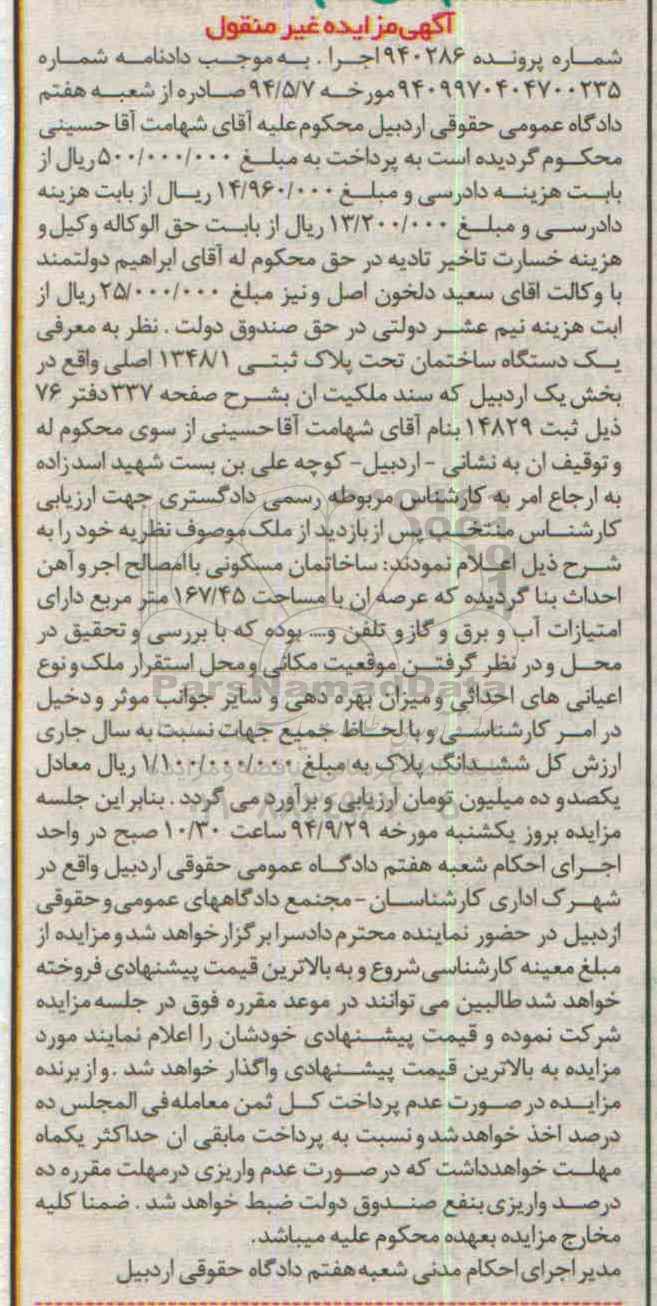 آگهی مزایده غیر منقول
شماره پرونده ۹۴۰۲۸۶ اجرا . به موجب دادنامه شماره
۹۴۰۹۹۷۰۴۰۴۷۰۰۲۳۵ مورخه ۹۴/۵/۷ صادره از شعبه هفتم
دادگاه عمومی حقوقی اردبیل محکوم علیه آقای شهامت آقا حسینی
محکوم گردیده است به پرداخت به مبلغ ۵۰۰/۰۰۰/۰۰۰ ریال از
بابت هزینه دادرسی و مبلغ ۱۴/۹۶۰/۰۰۰ ریال از بابت هزینه
دادرسی و مبلغ ۱۳/۲۰۰/۰۰۰ ریال از بابت حق الوکاله وکیل و
هزینه خسارت تاخیر تادیه در حق محکوم له آقای ابراهیم دولتمند
با وکالت اقای سعید دلخون اصل و نیز مبلغ ۲۵/۰۰۰/۰۰۰ ریال از
ابت هزینه نیم عشر دولتی در حق صندوق دولت . نظر به معرفی
یک دستگاه ساختمان تحت پلاک ثبتی ۱۳۴۸/۱ اصلی واقع در
بخش یک اردبیل که سند ملکیت ان بشرح صفحه ۳۳۷ دفتر ۷۶
ذیل ثبت ۱۴۸۲۹ بنام آقای شهامت آقا حسینی از سوی محکوم له
و توقیف ان به نشانی - اردبیل- کوچه علی بن بست شهید اسد زاده
به ارجاع امر به کارشناس مربوطه رسمی دادگستری جهت ارزیابی
کارشناس منتخب پس از بازدید از ملک موصوف نظریه خود را به
شرح ذیل اعلام نمودند: ساخاتمان مسکونی باامصالح اجر و آهن
احداث بنا گردیده که عرصه ان با مساحت ۱۶۷/۴۵ متر مربع دارای
امتیازات آب و برق و گاز و تلفن و... بوده که با بررسی و تحقیق در
محل و در نظر گرفتن موقعیت مکانی و محل استقرار ملک و نوع
اعیانی های احداثی و میزان بهره دهی و سایر جوانب موثر و دخیل
در امر کارشناسی و با لحاظ جمیع جهات نسبت به سال جاری
ارزش کل ششدانگ پلاک به مبلغ ۱/۱۰۰/۰۰۰/۰۰۰ ریال معادل
یکصدو ده میلیون تومان ارزیابی و برآورد می گردد . بنابر این جلسه
مزایده بروز یکشنبه مورخه ۹۴/۹/۲۹ ساعت ۱۰/۳۰ صبح در واحد
اجرای احکام شعبه هفتم دادگاه عمومی حقوقی اردبیل واقع در
شهرک اداری کارشناسان - مجتمع دادگاههای عمومی و حقوقی
اردبیل در حضور نماینده محترم دادسرا برگزار خواهد شد و مزایده از
مبلغ معینه کارشناسی شروع و به بالاترین قیمت پیشنهادی فروخته
خواهد شد طالبین می توانند در موعد مقرره فوق در جلسه مزایده
شرکت نموده و قیمت پیشنهادی خودشان را اعلام نمایند مورد
مزایده به بالاترین قیمت پیشنهادی واگذار خواهد شد . و از برنده
مزایده در صورت عدم پرداخت کل ثمن معامله فی المجلس ده
درصد اخذ خواهد شد و نسبت به پرداخت مابقی ان حداکثر یکماه
مهلت خواهدداشت که در صورت عدم واریزی درمهلت مقرره ده
درصد واریزی بنفع صندوق دولت ضبط خواهد شد . ضمنا کلیه
مخارج مزایده بعهده محکوم علیه میباشد.
مدیر اجرای احکام مدنی شعبه هفتم دادگاه حقوقی اردبیل
ParsNamadData